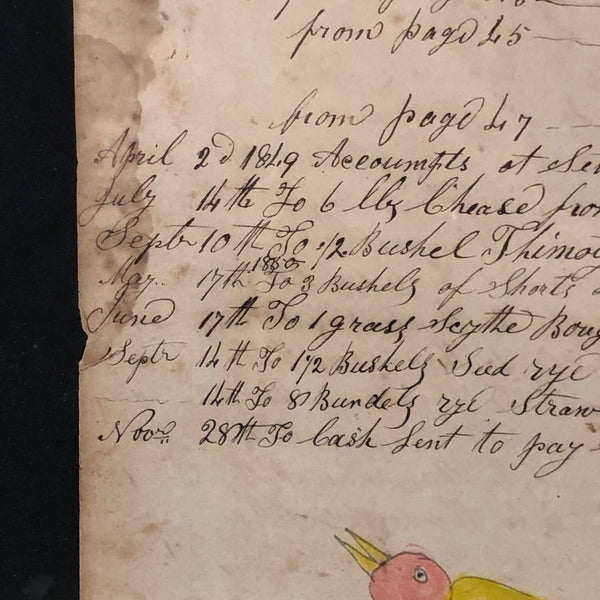 from pagd 45
from pagd 47
April 2d 1849 Accoumpts at
July 14th To 6 lbs Chease from
Septr 10th To 1/2 Bushel
1850
May 17th To 3 Bushels of Shorts
June 17th To 1 grass Scythe
Septr 14th To 1 1/2 Bushels Seed rye
14th To 8 Bundels rye Straw
Novr 28th To Cash Sent to pay